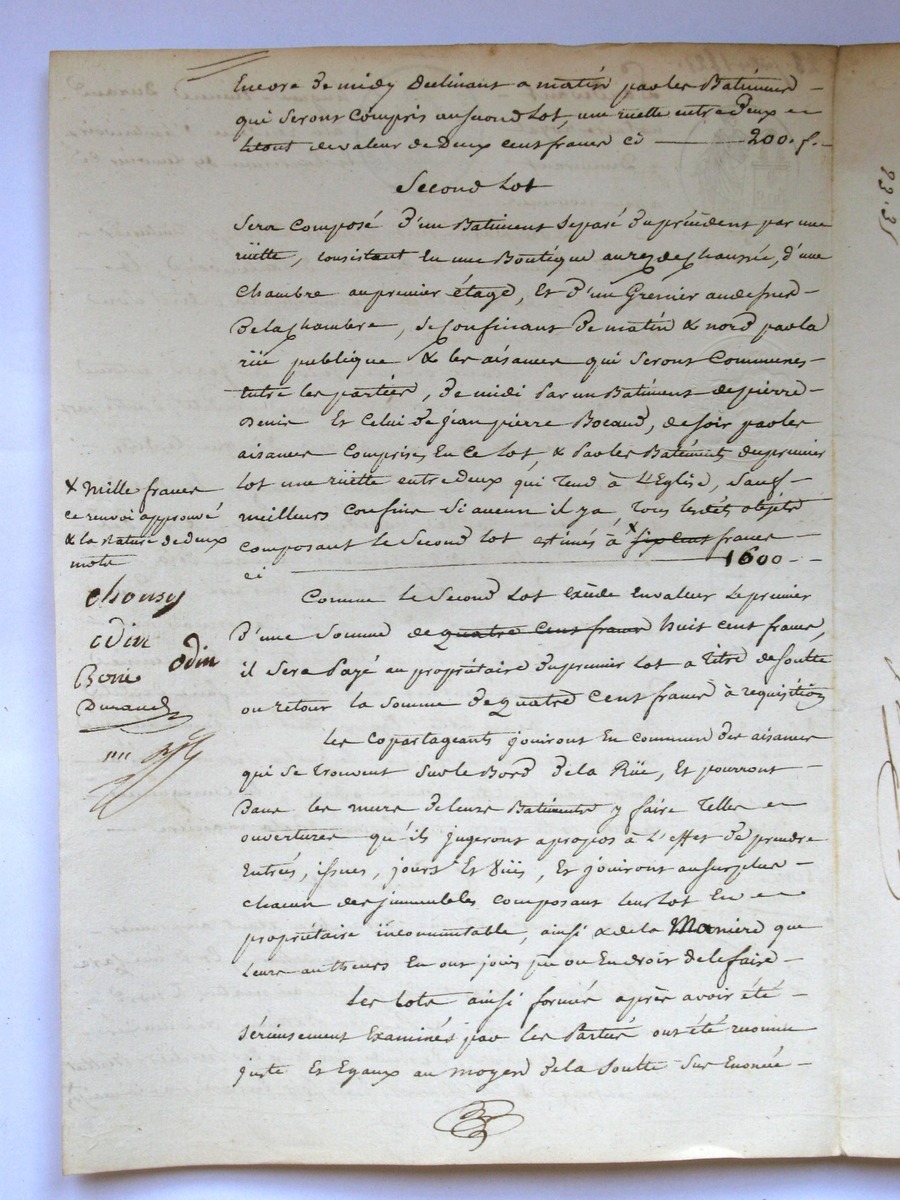 Encore de midy declinant a matin par les Batiments
qui seront compris au second lot, une ruette entre deux en
le tout de valeur de deux cent francs ci — 200. f. -
Second Lot
Sera Composé d'un Batiment separé du précédent par une
rüette, consistant en une Boutique au rez de chaussée, d'une
chambre au premier étage, et d'un Grenier au dessus
de la Chambre, se confinant de matin & nord par la
rüe publique & les aisances qui seront Communes
entre les parties, de midi par un Batiment de pierre
Denis et celui de jean pierre Bocaud, de soir par les
aisances comprises en ce lot, & par les Batiments du premier
lot une rüette entre deux qui tend à L'Eglise, Sauf
meilleurs confins si aucun il y a, tous lesdits objets
composant le Second lot estimés à x six cent francs
ci — 1600 - -
x Mille francs
ce renvoi approuvé
& la rature de deux
mots
Chousy
odin
odin
Borie
Durand
Comme le Second Lot excéde en valeur le premier
d'une Somme de quatre cent francs huit cent francs,
il sera payé au propriétaire du premier lot a titre de soulte
ou retour la somme de quatre cent francs à requisition
Les copartageants jouiront en commun des aisances
qui se trouvent sur le Bord de la Rüe, et pourront
dans les murs de leurs Batiments y faire telles
ouvertures qu'ils jugeront apropos à l'effet de prendre
Entrés, issues, jours et vües, et jouiront au surplus
chacun des immeubles composant leur lot en
propriétaire incommutable, ainsi & de la Maniere que
leurs autheurs en ont joui pu ou en droit de le faire -
Les lots ainsi formés après avoir été
sérieusement examinés par les Parties ont été reconnu
juste et Egaux au moyen de la soulte sus enoncée -